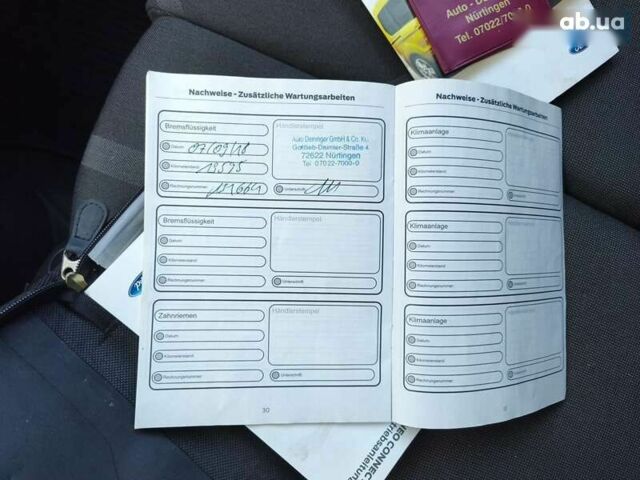 ab.ua
Auto - De
Nürtingen
Tel. 07022/70 -0
Nachweise - Zusätzliche Wartungsarbeiten
Bremsflüssigkeit
Datum 07/09/18
Kilometerstand 19595
Rechnungsnummer
Händlerstempel
Auto Deininger GmbH & Co. KG
Gottlieb-Daimler-Straße 4
72622 Nürtingen
Tel. 07022-7000-0
Unterschrift
Bremsflüssigkeit
Datum
Kilometerstand
Rechnungsnummer
Händlerstempel
Unterschrift
Zahnriemen
Datum
Kilometerstand
Rechnungsnummer
Händlerstempel
Unterschrift
30
Nachweise - Zusätzliche Wartungsarbeiten
Klimaanlage
Datum
Kilometerstand
Rechnungsnummer
Händlerstempel
Unterschrift
Klimaanlage
Datum
Kilometerstand
Rechnungsnummer
Händlerstempel
Unterschrift
Klimaanlage
Datum
Kilometerstand
Rechnungsnummer
Händlerstempel
Unterschrift
NEO CONNEC
triebsanleitung